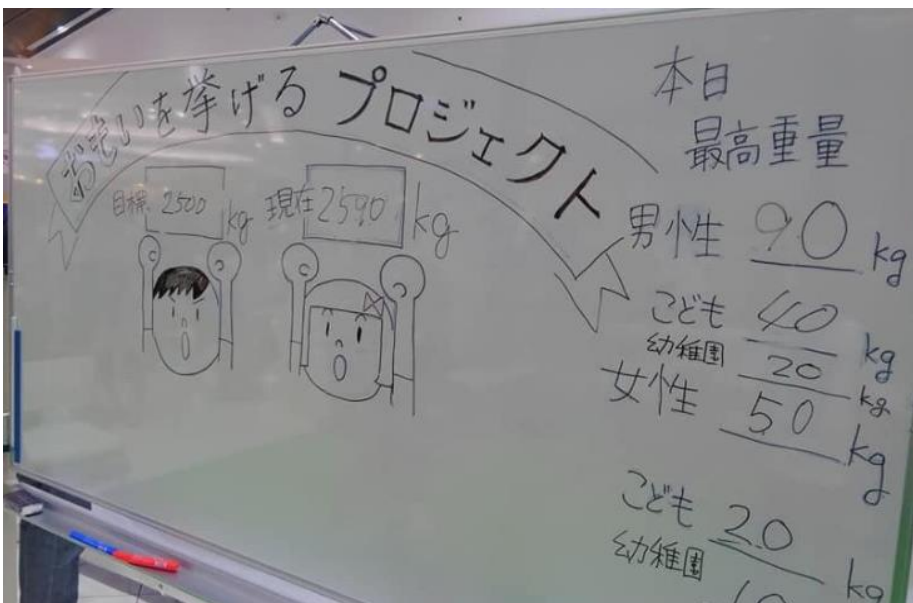 おもいを挙げるプロジェクト
目標 2500 kg
現在 2590 kg
本日
最高重量
男性 90 kg
こども 40 kg
幼稚園 20 kg
女性 50 kg
こども 20 kg
幼稚園 10